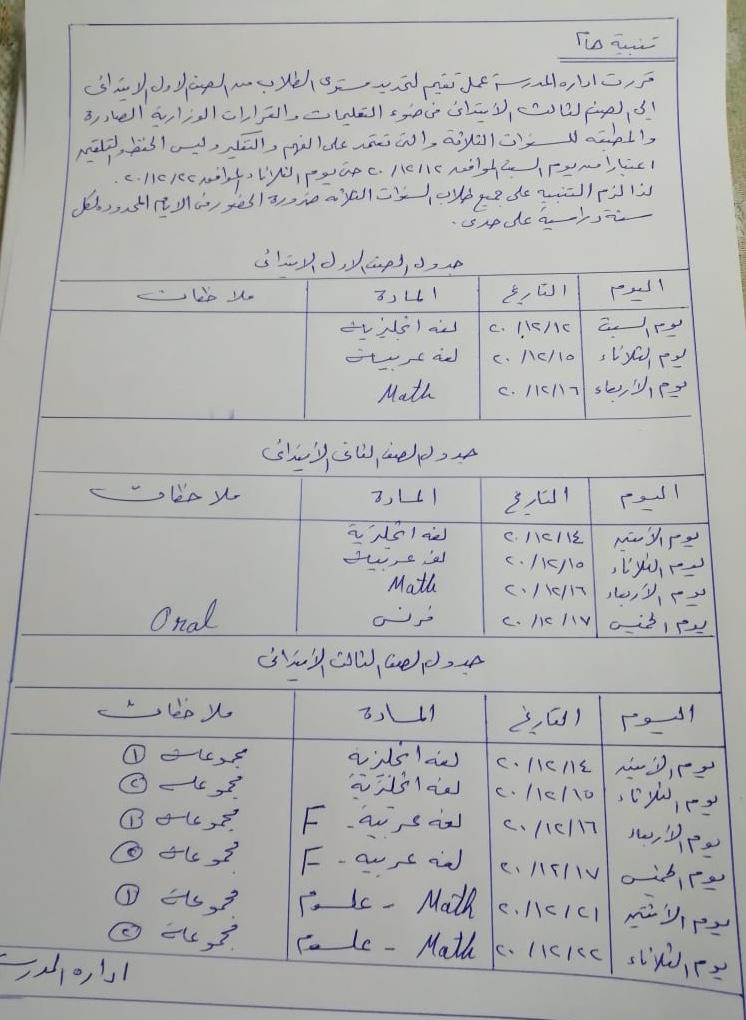 تنبية هام
قررت اداره المدرسة عمل تقيم لتحديد مستوى الطلاب من الصف الاول الابتدائى
الى الصف الثالث الأبتدائى فى ضوء التعليمات والقرارات الوزارية الصادرة
والمطبقه للسنوات الثلاثة والتى تعتمد على الفهم والتفكير وليس الحفظ والتلقين
اعتبارا من يوم السبت الموافق ٢٠/١٢/١٢ حتى يوم الثلاثاء الموافق ٢٠/١٢/٢٢.
لذا لزم التنبيه على جميع طلاب السنوات الثلاثه ضرورة الحضور فى الايام المحدوده لكل
سنة دراسية على حدى.
جدول الصف الاول الابتدائى
اليوم التاريخ المادة ملاحظات
يوم السبت ٢٠/١٢/١٢ لغه انجليزية
يوم الثلاثاء ٢٠/١٢/١٥ لغه عربية
يوم الأربعاء ٢٠/١٢/١٦ Math
جدول الصف الثانى الأبتدائى
اليوم التاريخ المادة ملاحظات
يوم الأثنين ٢٠/١٢/١٤ لغه انجليزية
يوم الثلاثاء ٢٠/١٢/١٥ لغه عربية
يوم الأربعاء ٢٠/١٢/١٦ Math
يوم الخميس ٢٠/١٢/١٧ فرنسى Oral
جدول الصف الثالث الأبتدائى
اليوم التاريخ المادة ملاحظات
يوم الأثنين ٢٠/١٢/١٤ لغه انجليزية مجموعة ①
يوم الثلاثاء ٢٠/١٢/١٥ لغه انجليزية مجموعة ②
يوم الأربعاء ٢٠/١٢/١٦ لغه عربية - F مجموعة ①
يوم الخميس ٢٠/١٢/١٧ لغه عربيه - F مجموعة ②
يوم الأثنين ٢٠/١٢/٢١ Math - علوم مجموعة ①
يوم الثلاثاء ٢٠/١٢/٢٢ Math - علوم مجموعة ②
اداره المدرسة